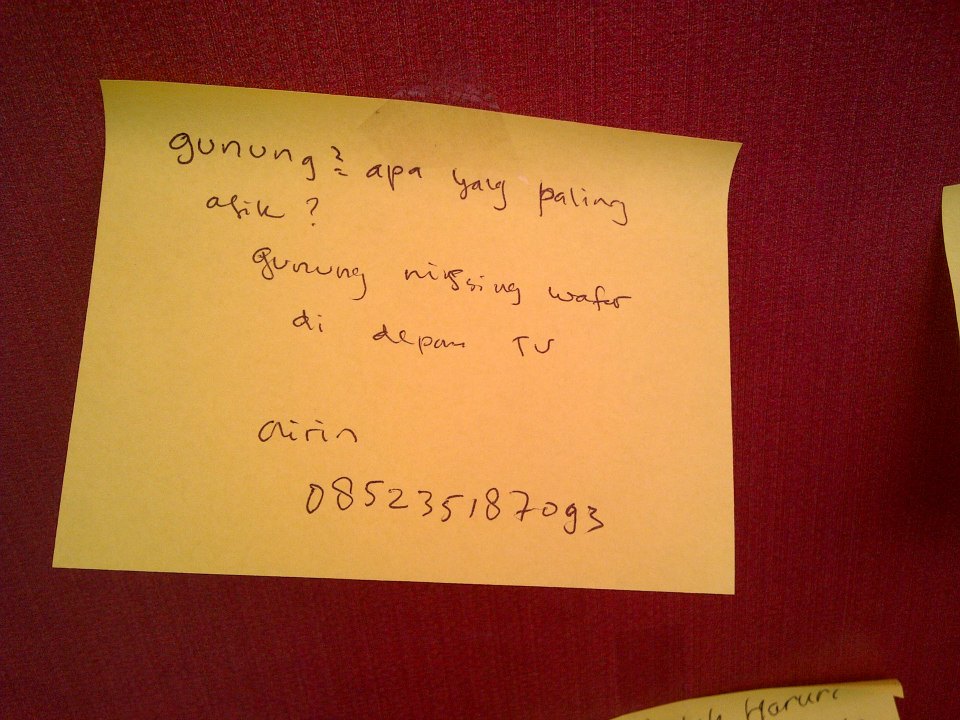 gunung² apa yang paling
asik ?
gunung ningsing wafer
di depan TV
airin
085235187093
Haruri